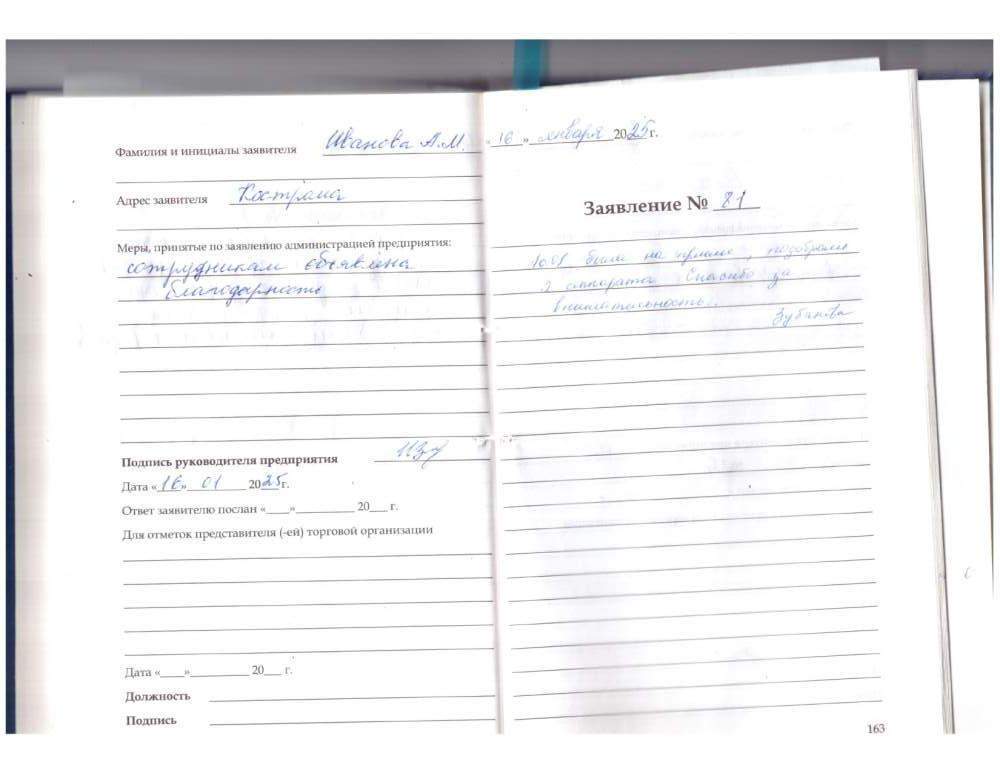 Фамилия и инициалы заявителя Иванова А.М.
Адрес заявителя Кострома
Меры, принятые по заявлению администрацией предприятия:
сотрудникам объявлена
благодарность
Подпись руководителя предприятия
Дата «16» 01 2025г.
Ответ заявителю послан «___»__________ 20___ г.
Для отметок представителя (-ей) торговой организации
Дата «___»__________ 20___ г.
Должность
Подпись
«16» января 2025г.
Заявление № 81
10.01 была на приеме, подобрали
2 аппарата. Спасибо за
внимательность.
Зубанова
163